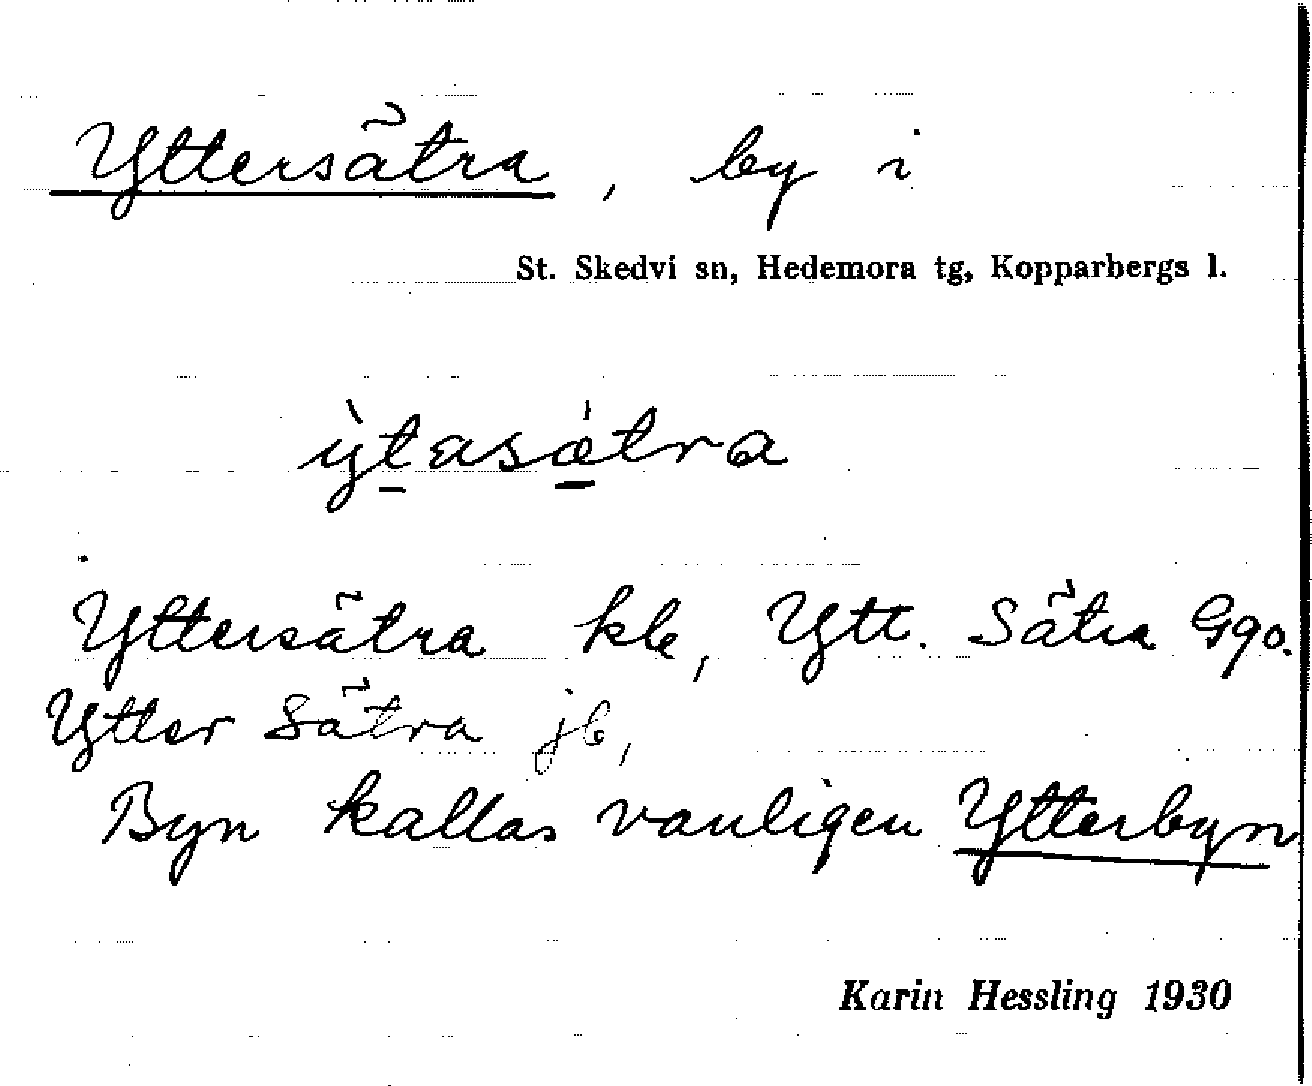 Yttersätra, by i
St. Skedvi sn, Hedemora tg, Kopparbergs l.
ỳtasátra
Yttersätra kb, Ytt. Sätra Ggo.
Ytter Sätra jb,
Byn kallas vanligen Ytterbyn
Karin Hessling 1930